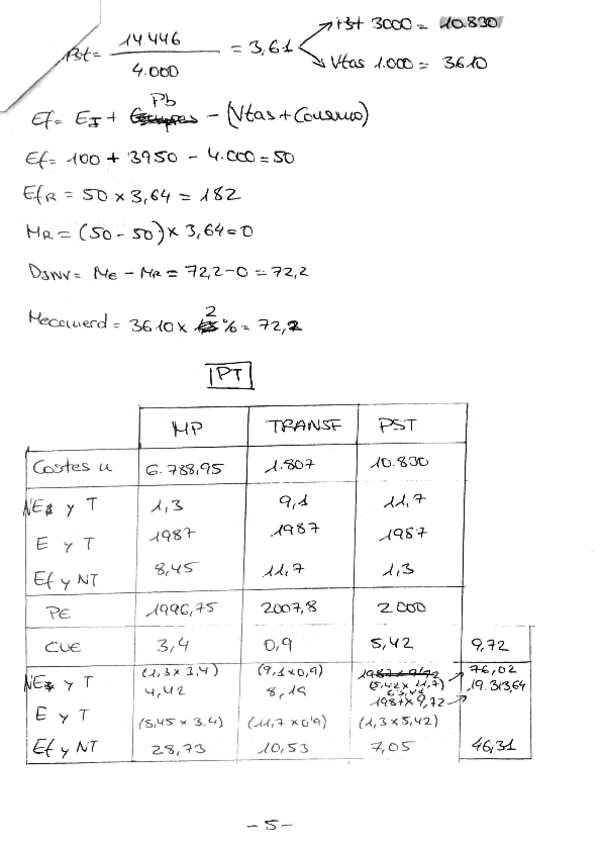 Pst = 14.446 / 4.000 = 3,61
Pst 3000 = 10.830
Vtas 1.000 = 3610
Ef = EI + Pb - (Vtas + Consumo)
Ef = 100 + 3950 - 4.000 = 50
EfR = 50 x 3,64 = 182
MR = (50 - 50) x 3,64 = 0
DINV = Me - MR = 72,2 - 0 = 72,2
3610 x 2% = 72,2
IPT
MP TRANSF PST
Costes u 6.788,95 1.807 10.830
NE y T 1,3 9,1 11,7
E y T 1987 1987 1987
Ef y NT 8,45 11,7 1,3
PE 1996,75 2007,8 2000
CUE 3,4 0,9 5,42 9,72
NE y T (1,3 x 3,4) (9,1 x 0,9) 1987 x 9,72 76,02
4,42 8,19 (5,42 x 11,7) 19.313,64
63,41
E y T 1987 x 9,72
(5,45 x 3,4) (11,7 x 0,9) (1,3 x 5,42)
Ef y NT 28,73 10,53 7,05 46,31
- 5 -